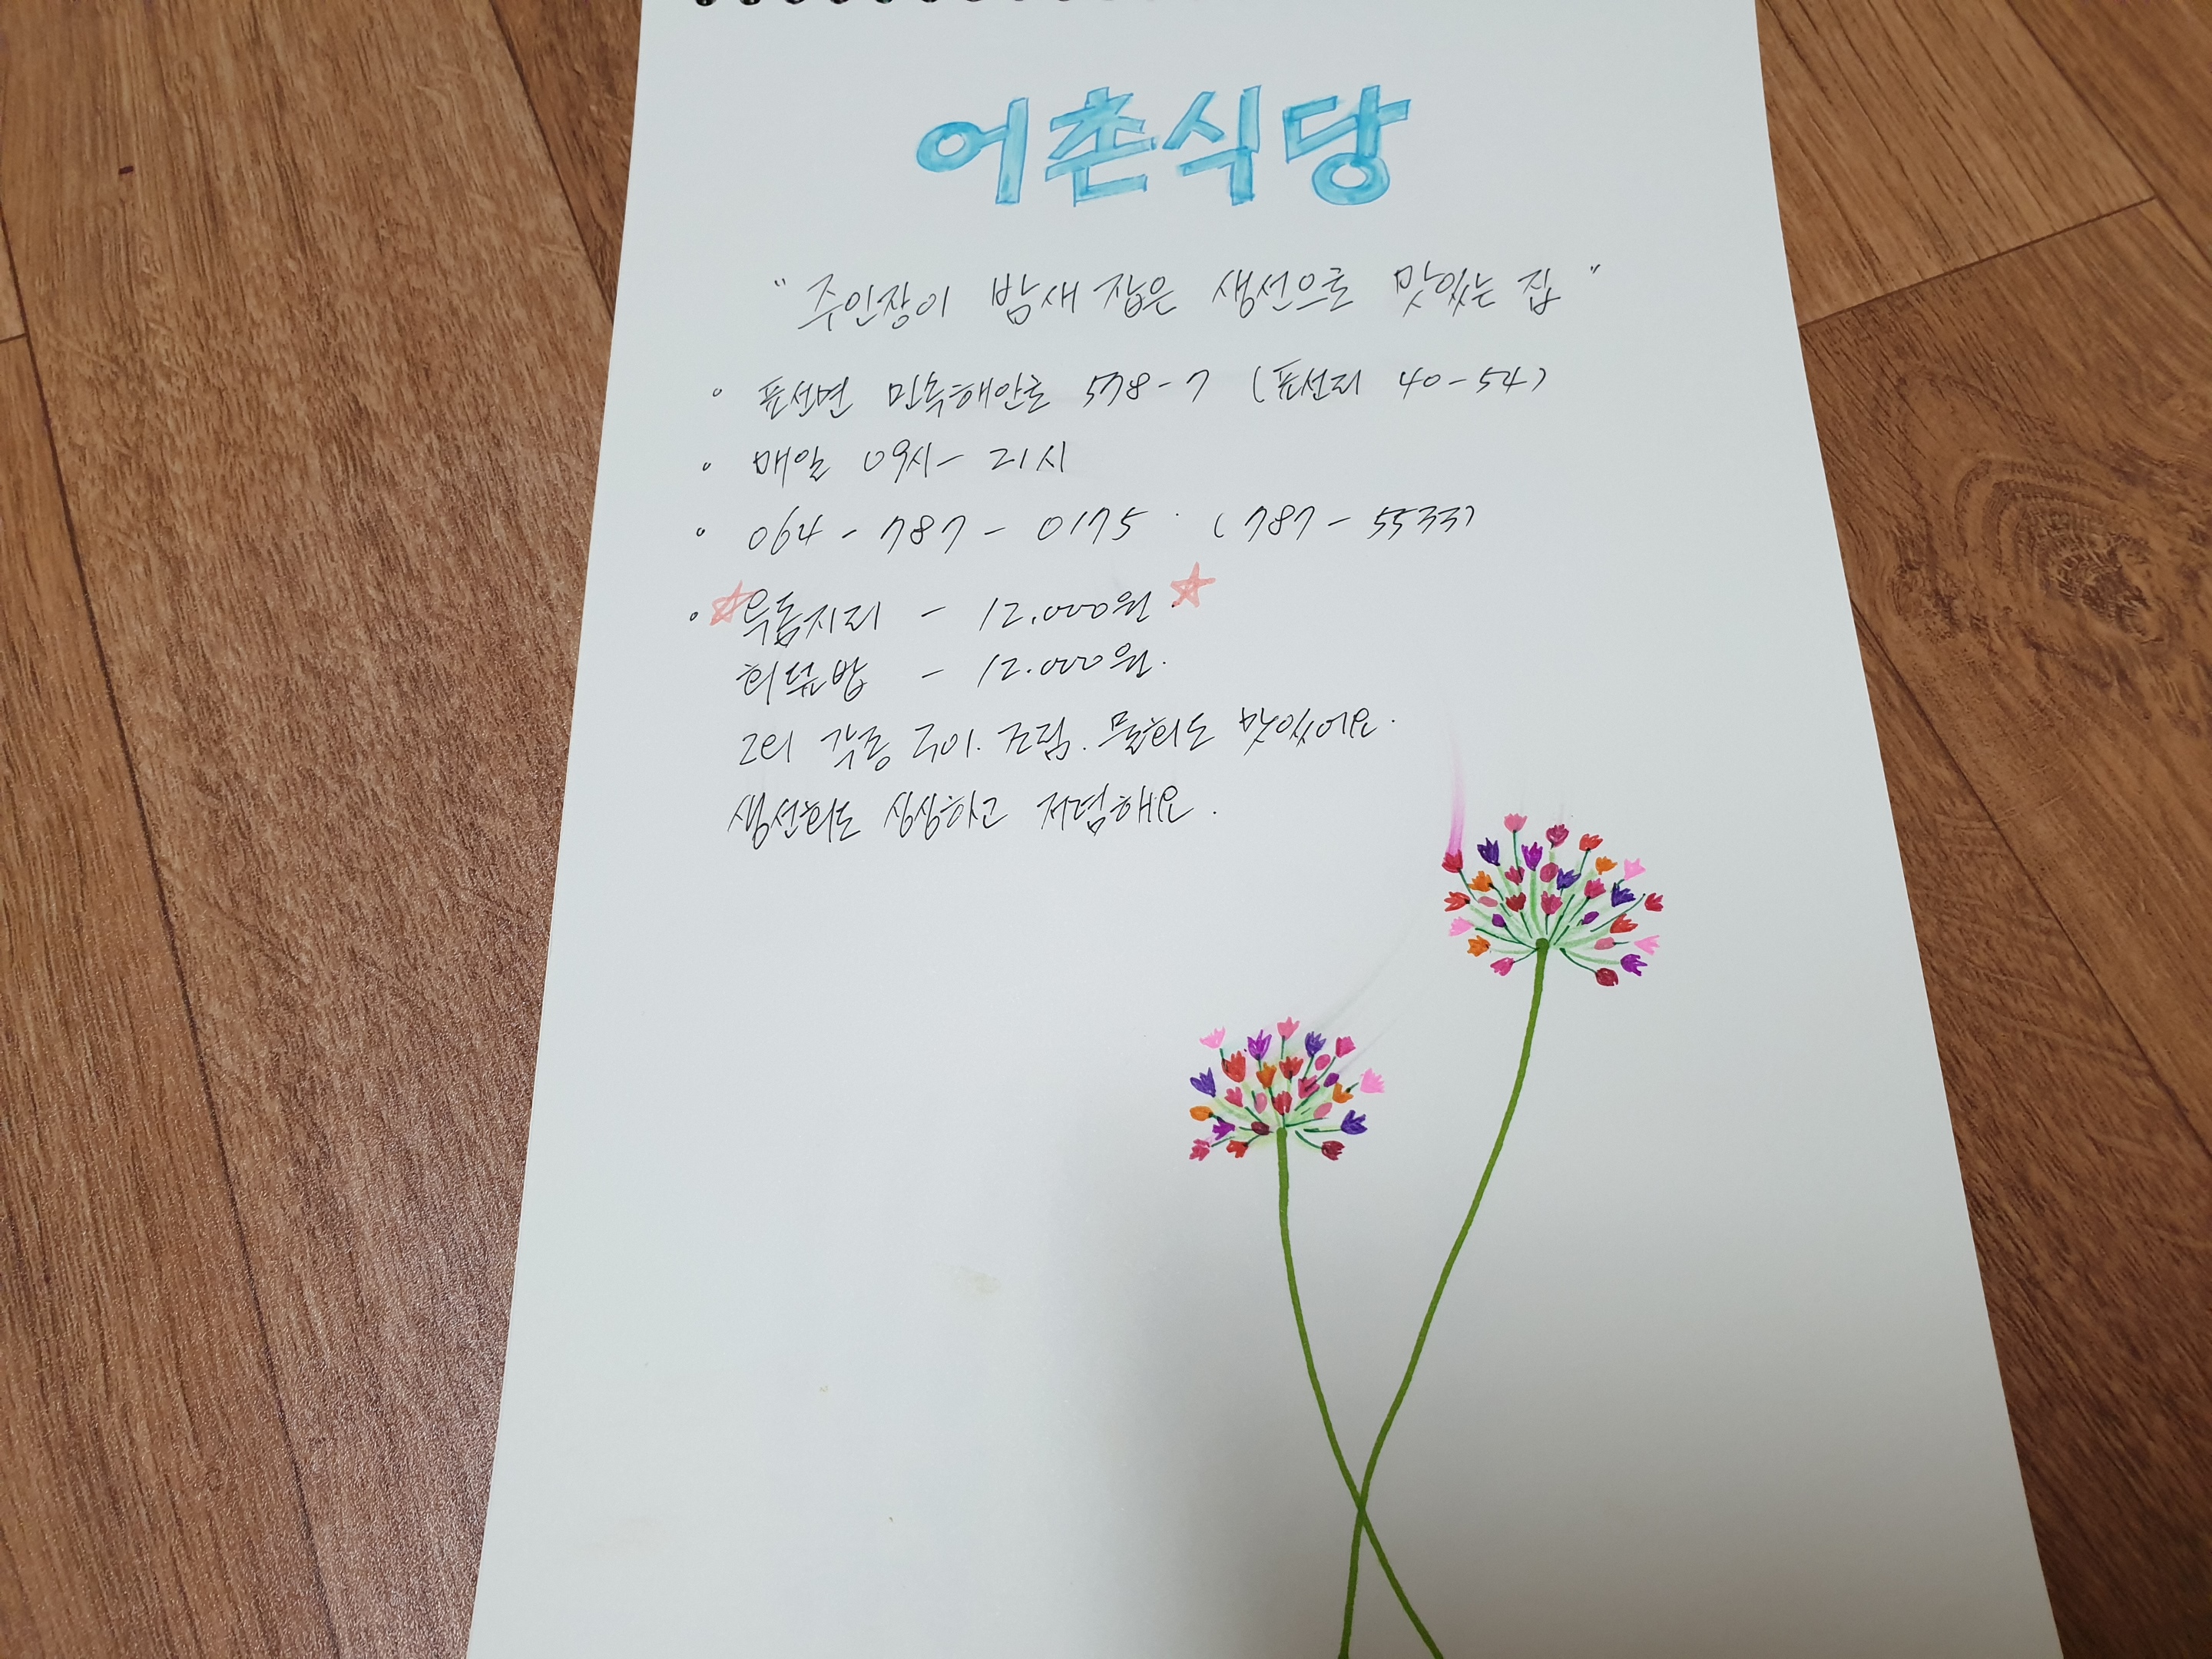 어촌식당
" 주인장이 밤새 잡은 생선으로 맛있는 집 "
◦ 표선면 민속해안로 578-7 (표선리 40-54)
◦ 매일 09시 - 21시
◦ 064 - 787 - 0175 (787 - 5533)
◦ ☆옥돔지리 - 12.000원 ☆
회덮밥 - 12.000원.
그외 각종 구이. 조림. 물회도 맛있어요.
생선회도 싱싱하고 저렴해요.